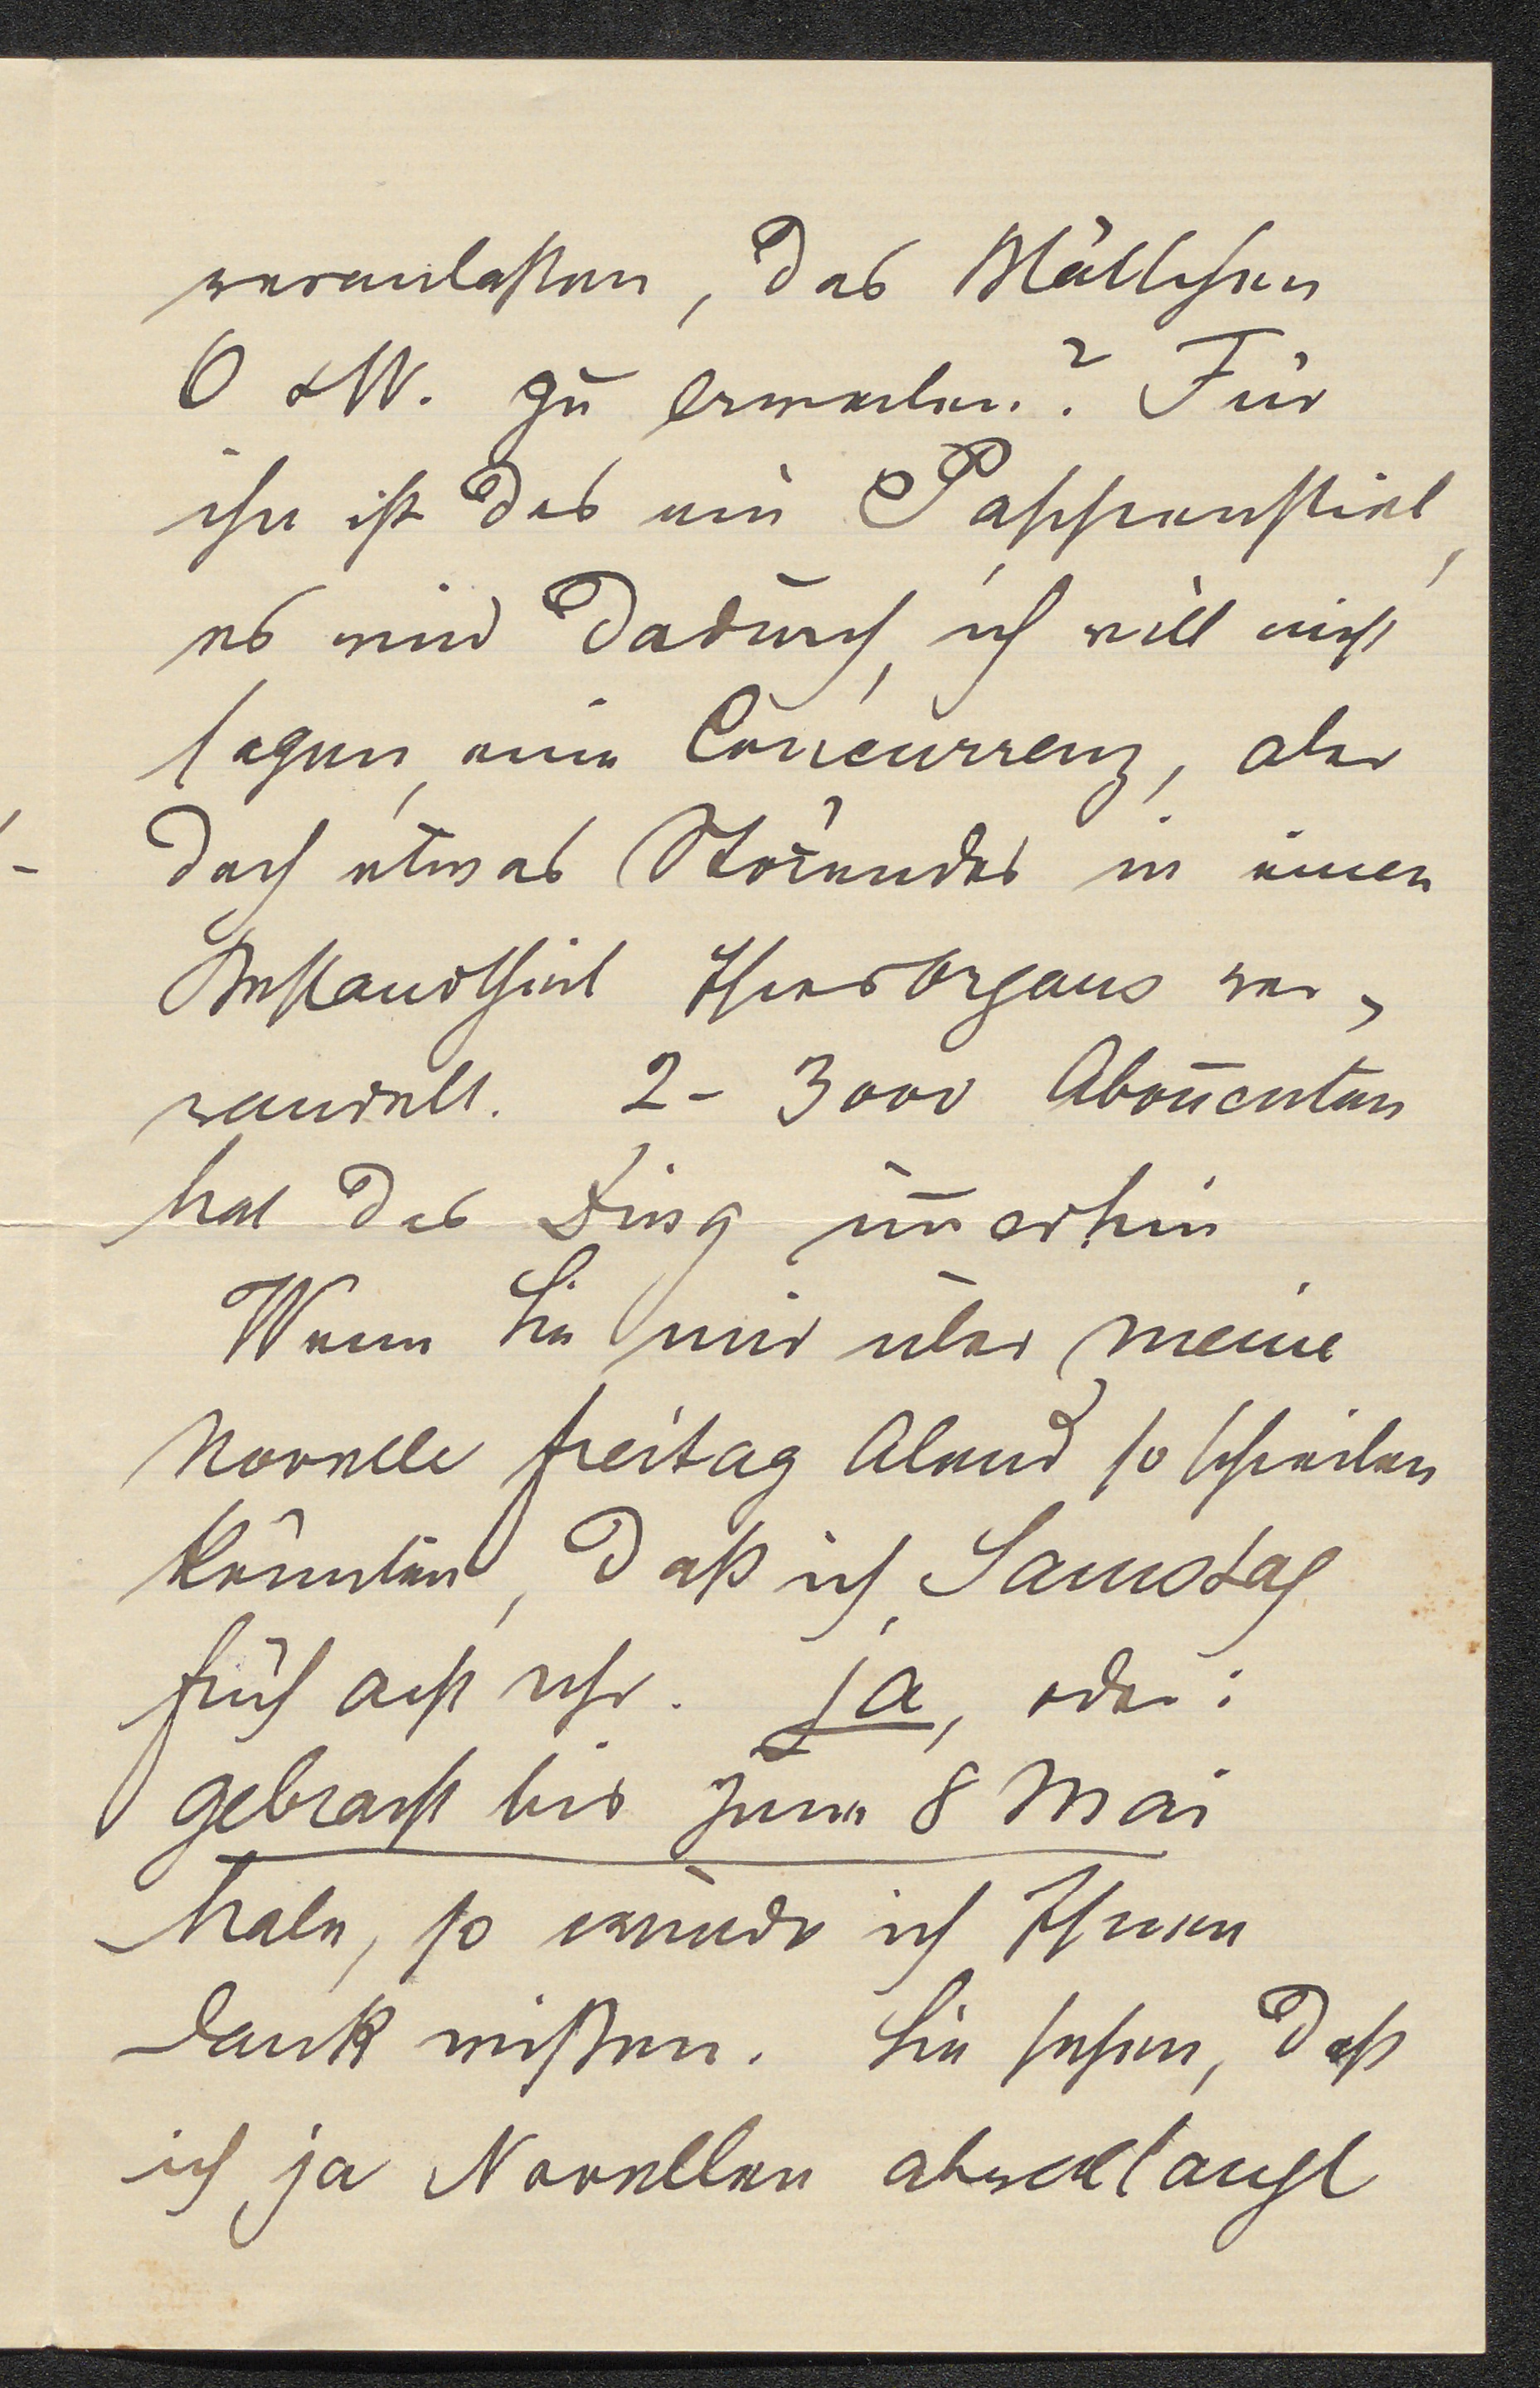 veranlaßen, das Blättchen
O & W. zu erwerben? Für
ihn ist das ein Pappenstiel,
es wird dadurch, ich will nicht
sagen, eine Concurrenz, aber
doch etwas Störendes in einen
Bestandtheil Ihres Organs ver-
wandelt. 2 - 3000 Abon̄enten
hat das Ding im̄erhin
Wenn Sie mir über meine
Novelle Freitag Abend so schreiben
könnten, daß ich Samstag
früh acht Uhr. ja, oder:
gebracht bis zum 8 Mai
habe, so würde ich Ihnen
Dank wißen. Sie sehen, daß
ich ja Novellen